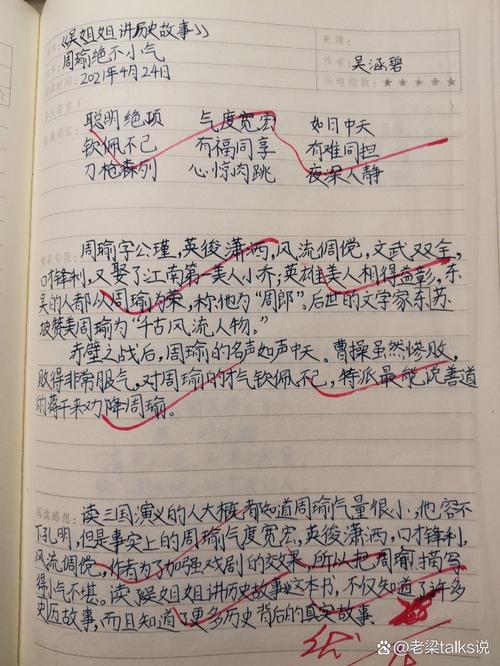 《吴姐姐讲历史故事》
来源:
周瑜绝不小气
作者: 吴涵碧
阅读时间: 2021年4月24日
关统指数: ★★★★★
聪明绝顶 气度宽宏 如日中天
钦佩不已 有福同享 有难同担
刀枪森列 心惊肉跳 夜深人静
周瑜字公瑾,英俊潇洒,风流倜傥,文武双全,
口才锋利,又娶了江南第一美人小乔,英雄美人相得益彰,东
吴的人都以周瑜为荣,称他为“周郎”。后世的文字家东苏
坡赞美周瑜为“千古风流人物。”
赤壁之战后,周瑜的名声如声中天。曹操虽然惨败,
败得非常服气,对周瑜的才气钦佩不已,特派最能说善道
的蒋干来劝降周瑜。
阅读感想: 读三国演义的人大概都知道周瑜气量很小,他容不
下孔明,但是事实上的周瑜气度宽宏,英俊潇洒,口才锋利,
风流倜傥,作者为了加强戏剧的效果,所以把周瑜描写
得小气不堪。读《吴姐姐讲历史故事》这本书,不仅知道了许多
史历故事,而且知道了更多历史背后的真实故事.
@老梁talks说